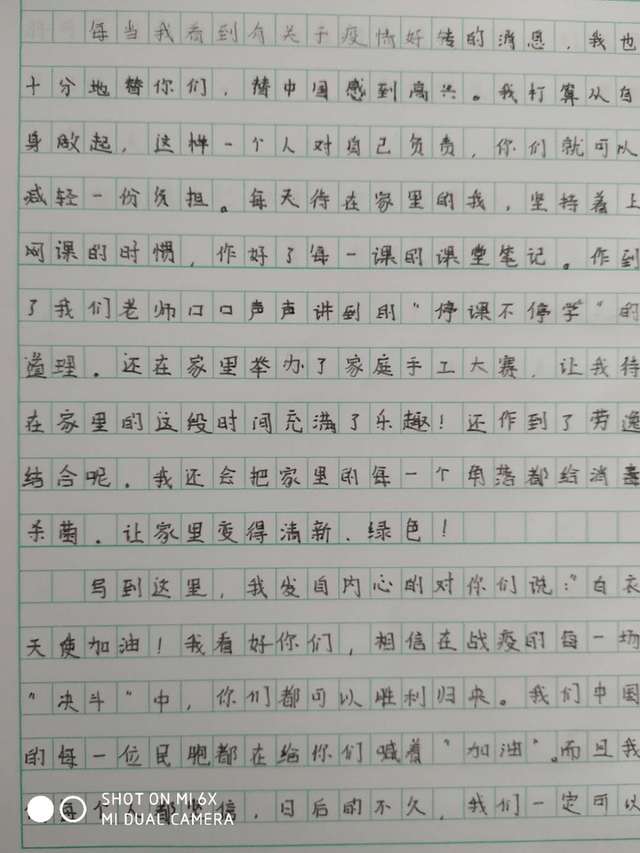 每当我看到有关于疫情好转的消息，我也
十分地替你们，替中国感到高兴。我打算从自
身做起，这样一个人对自己负责，你们就可以
减轻一份负担。每天待在家里的我，坚持着上
网课的时惯，作好了每一课的课堂笔记。作到
了我们老师口口声声讲到的“停课不停学”的
道理。还在家里举办了家庭手工大赛，让我待
在家里的这段时间充满了乐趣！还作到了劳逸
结合呢。我还会把家里的每一个角落都给消毒
杀菌。让家里变得清新、绿色！
写到这里，我发自内心的对你们说：“白衣
天使加油！我看好你们，相信在战疫的每一场
“决斗“中，你们都可以胜利归来。我们中国
的每一位民胞都在给你们喊着“加油”。而且我
每个人都坚信，日后的不久，我们一定可以
SHOT ON MI 6X
MI DUAL CAMERA